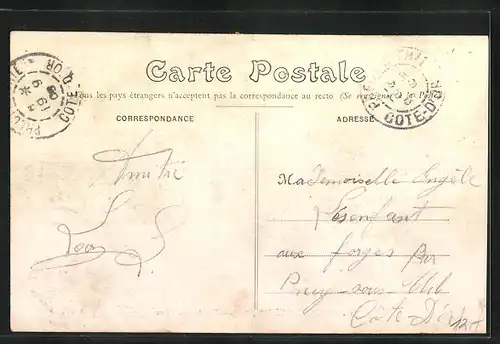 Carte Postale
Tous les pays étrangers n'acceptent pas la correspondance au recto (Se renseigner à la Poste)
CORRESPONDANCE
ADRESSE
CÔTE D'OR
CÔTE-D'OR
Amitié
Mademoiselle Engèle
Lesenfant
aux forges par
Precy-sous-Thil
Côte D'or